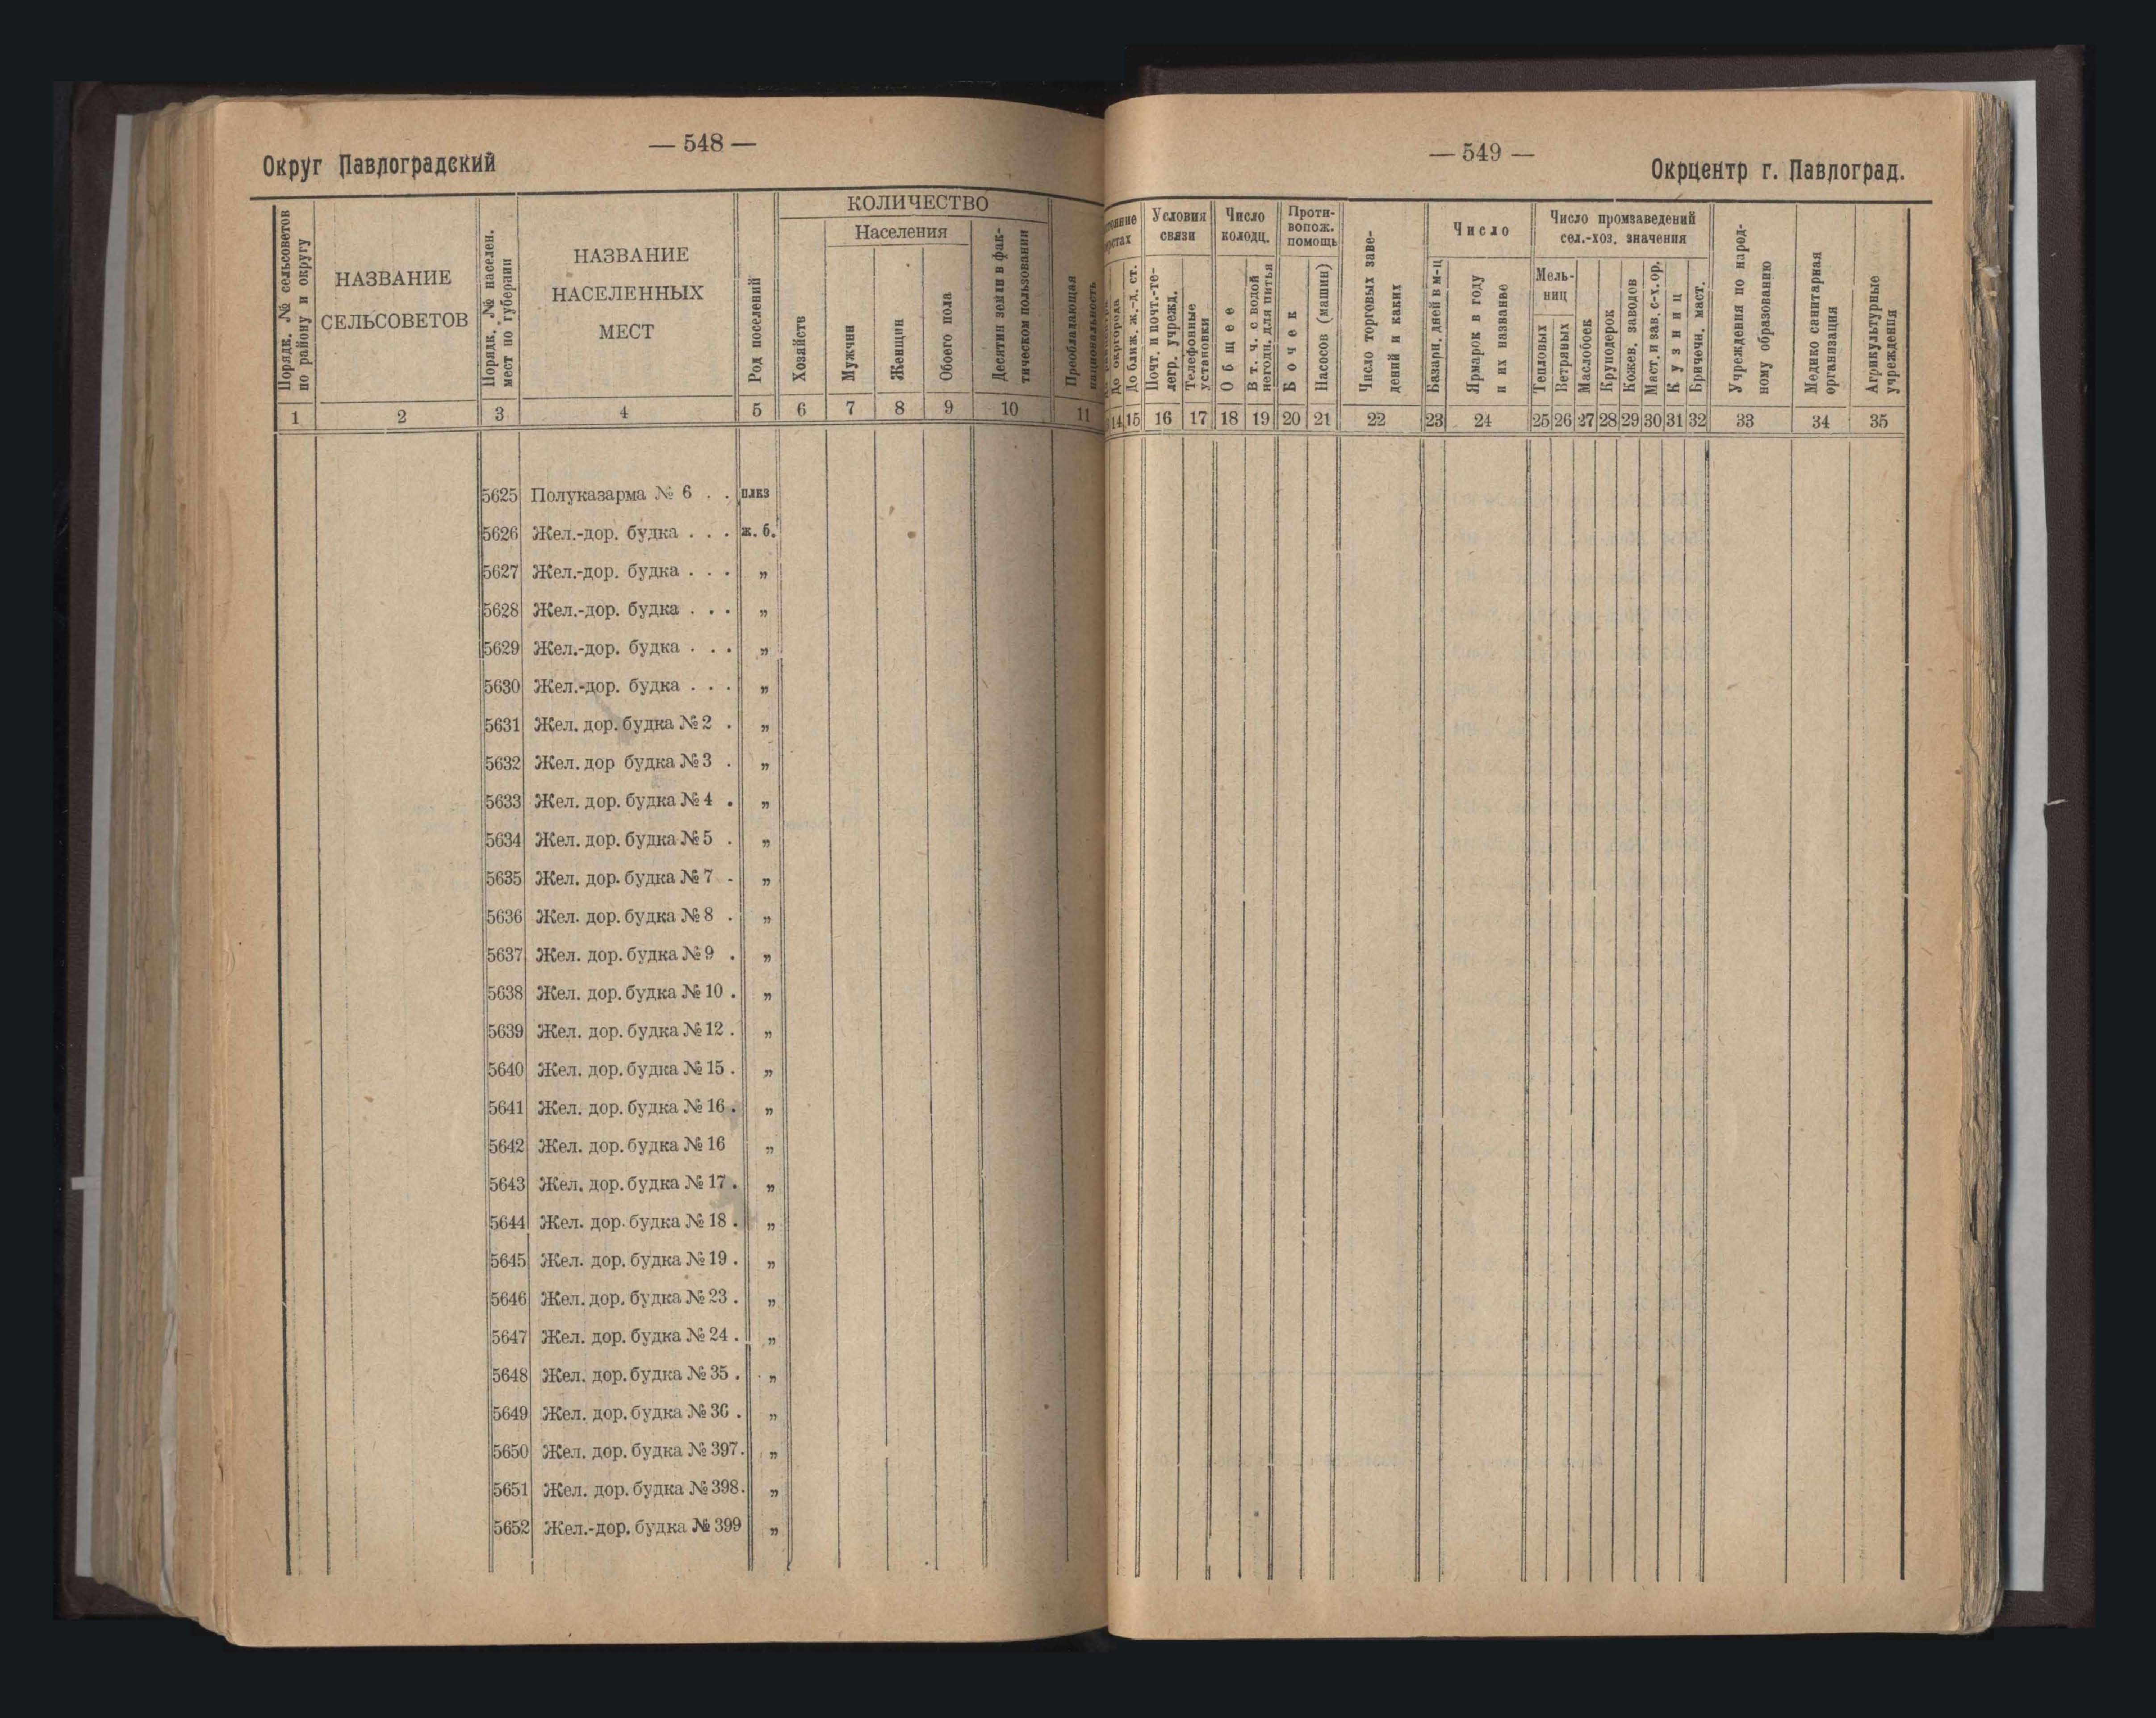 — 548 —
Округ Павлоградский
Порядк. №№ сельсоветов
по району и округу
НАЗВАНИЕ
СЕЛЬСОВЕТОВ
Порядк. №№ населен.
мест по губернии
НАЗВАНИЕ
НАСЕЛЕННЫХ
МЕСТ
Род поселений
КОЛИЧЕСТВО
Хозяйств
Населения
Мужчин
Женщин
Обоего пола
Десятин земли в фак-
тическом пользовании
Преобладающая
национальность
1 2 3 4 5 6 7 8 9 10 11
5625 Полуказарма № 6 . . плкз
5626 Жел.-дор. будка . . . ж. б.
5627 Жел.-дор. будка . . . „
5628 Жел.-дор. будка . . . „
5629 Жел.-дор. будка . . . „
5630 Жел.-дор. будка . . . „
5631 Жел. дор. будка № 2 . „
5632 Жел. дор будка № 3 . „
5633 Жел. дор. будка № 4 . „
5634 Жел. дор. будка № 5 . „
5635 Жел. дор. будка № 7 - „
5636 Жел. дор. будка № 8 . „
5637 Жел. дор. будка № 9 . „
5638 Жел. дор. будка № 10 . „
5639 Жел. дор. будка № 12 . „
5640 Жел. дор. будка № 15 . „
5641 Жел. дор. будка № 16 . „
5642 Жел. дор. будка № 16 „
5643 Жел. дор. будка № 17 . „
5644 Жел. дор. будка № 18 . „
5645 Жел. дор. будка № 19 . „
5646 Жел. дор. будка № 23 . „
5647 Жел. дор. будка № 24 . „
5648 Жел. дор. будка № 35 . „
5649 Жел. дор. будка № 36 . „
5650 Жел. дор. будка № 397. „
5651 Жел. дор. будка № 398. „
5652 Жел.-дор. будка № 399 „
— 549 —
Окрцентр г. Павлоград.
До окргорода
До ближ. ж.-д. ст.
Условия
связи
Почт. и почт.-те-
легр. учрежд.
Телефонные
установки
Число
колодц.
Общее
В т. ч. с водой
негодн. для питья
Проти-
вопож.
помощь
Бочек
Насосов (машин)
Число торговых заве-
дений и каких
Число
Базарн. дней в м-ц
Ярмарок в году
и их название
Число промзаведений
сел.-хоз. значения
Мель-
ниц
Тепловых
Ветряных
Маслобоек
Круподерок
Кожев. заводов
Маст. и зав. с-х. ор.
Кузниц
Бричечн. маст.
Учреждения по народ-
ному образованию
Медико санитарная
организация
Агрикультурные
учреждения
14 15 16 17 18 19 20 21 22 23 24 25 26 27 28 29 30 31 32 33 34 35